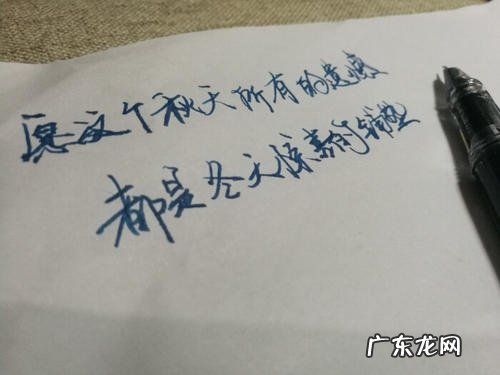 愿这个秋天所有的遗憾
都是冬天惊喜的铺垫
广东龙网